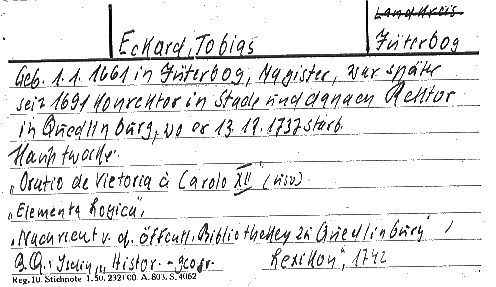 Landkreis
Eckard, Tobias Jüterbog
Geb. 1.1.1661 in Jüterbog, Magister, war später
seit 1691 Konrektor in Stade und danach Rektor
in Quedlinburg, wo er 13.12.1737 starb.
Hauptwerke:
"Oratio de Victoria à Carolo XII" (usw)
"Elementa Logica",
"Nachricht v. d. öffentl. Bibliotheken zu Quedlinburg",
B.Qu.: "Histor.-geogr. Lexikon", 1742
Reg. 10. Stichnote 1. 50. 232) 00. A. 803. S. 4062